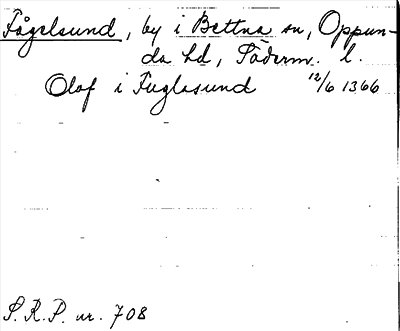 Fågelsund, by i Bettna sn, Oppun-
da hd, Söderm. l.
Olaf i Fuglasund 12/6 1366
S.R.P. nr. 708